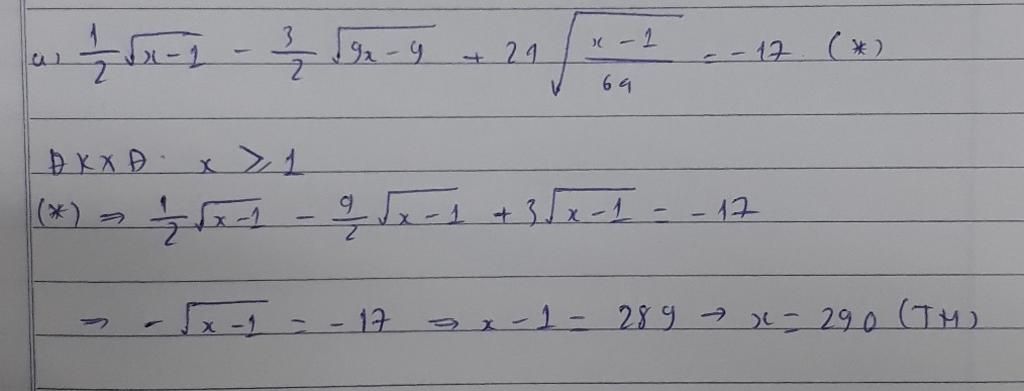 a) \frac{1}{2}\sqrt{x-1} - \frac{3}{2}\sqrt{9x-9} + 24\sqrt{\frac{x-1}{64}} = -17. (*)
ĐKXĐ: x ⩾ 1
(*) ⇒ \frac{1}{2}\sqrt{x-1} - \frac{9}{2}\sqrt{x-1} + 3\sqrt{x-1} = -17
⇒ -\sqrt{x-1} = -17 ⇒ x-1 = 289 → x = 290 (TM)